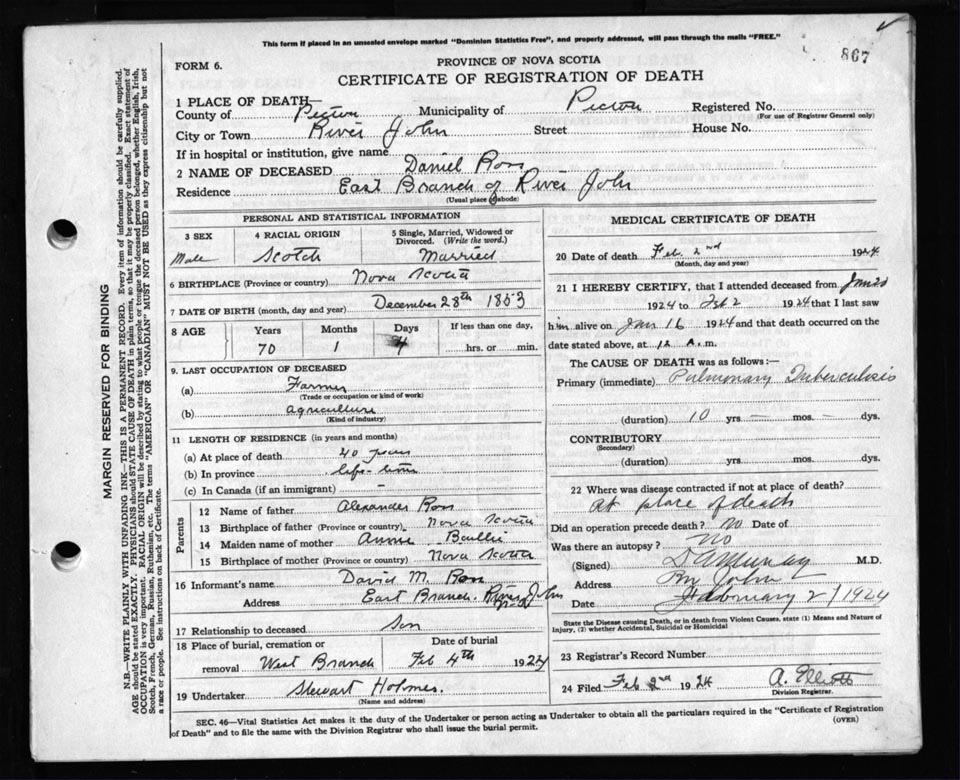 This form if placed in an unsealed envelope marked "Dominion Statistics Free", and properly addressed, will pass through the mails "FREE."
867
FORM 6.
PROVINCE OF NOVA SCOTIA
CERTIFICATE OF REGISTRATION OF DEATH
1 PLACE OF DEATH—
County of Pictou Municipality of Pictou Registered No.
(For use of Registrar General only)
City or Town River John Street House No.
If in hospital or institution, give name
2 NAME OF DECEASED Daniel Ross
Residence East Branch of River John
(Usual place of abode)
MARGIN RESERVED FOR BINDING
N.B.—WRITE PLAINLY WITH UNFADING INK—THIS IS A PERMANENT RECORD. Every item of information should be carefully supplied.
AGE should be stated EXACTLY. PHYSICIANS should STATE CAUSE OF DEATH in plain terms, so that it may be properly classified. Exact statement of
OCCUPATION is very important. RACIAL ORIGIN will be described by stating to what people or tongue the deceased person belonged, whether English, Irish,
Scotch, French, German, Russian, Ruthenian, etc. The terms "AMERICAN" or "CANADIAN" MUST NOT BE USED as they express citizenship but not
a race or people. See instructions on back of Certificate.
PERSONAL AND STATISTICAL INFORMATION
3 SEX
Male
4 RACIAL ORIGIN
Scotch
5 Single, Married, Widowed or
Divorced. (Write the word.)
Married
6 BIRTHPLACE (Province or country) Nova Scotia
7 DATE OF BIRTH (month, day and year) December 28th 1853
8 AGE
Years
70
Months
1
Days
4
If less than one day,
hrs. or min.
9. LAST OCCUPATION OF DECEASED
(a) Farmer
(Trade or occupation or kind of work)
(b) agriculture
(Kind of industry)
11 LENGTH OF RESIDENCE (in years and months)
(a) At place of death 40 years
(b) In province life-time
(c) In Canada (if an immigrant) —
Parents
12 Name of father Alexander Ross
13 Birthplace of father (Province or country) Nova Scotia
14 Maiden name of mother Annie Baillie
15 Birthplace of mother (Province or country) Nova Scotia
16 Informant's name David M. Ross
Address East Branch. River John
N.S.
17 Relationship to deceased Son
18 Place of burial, cremation or
removal West Branch
Date of burial
Feb 4th 1924
19 Undertaker Stewart Holmes.
(Name and address)
MEDICAL CERTIFICATE OF DEATH
20 Date of death Feb 2nd 1924
(Month, day and year)
21 I HEREBY CERTIFY, that I attended deceased from
1924 to Feb 2 1924 that I last saw
him alive on Jan 16 1924 and that death occurred on the
date stated above, at 12 A.m.
The CAUSE OF DEATH was as follows:—
Primary (immediate) Pulmonary Tuberculosis
(duration) 10 yrs — mos. — dys.
CONTRIBUTORY
(Secondary)
(duration) yrs. mos. dys.
22 Where was disease contracted if not at place of death?
At place of death
Did an operation precede death? No Date of
Was there an autopsy? No
(Signed) M.D.
Address John
Date February 2/1924
State the Disease causing Death, or in death from Violent Causes, state (1) Means and Nature of
Injury, (2) whether Accidental, Suicidal or Homicidal
23 Registrar's Record Number
24 Filed Feb 2nd 1924 A. Elliott
Division Registrar.
SEC. 46—Vital Statistics Act makes it the duty of the Undertaker or person acting as Undertaker to obtain all the particulars required in the "Certificate of Registration
of Death" and to file the same with the Division Registrar who shall issue the burial permit.
(OVER)